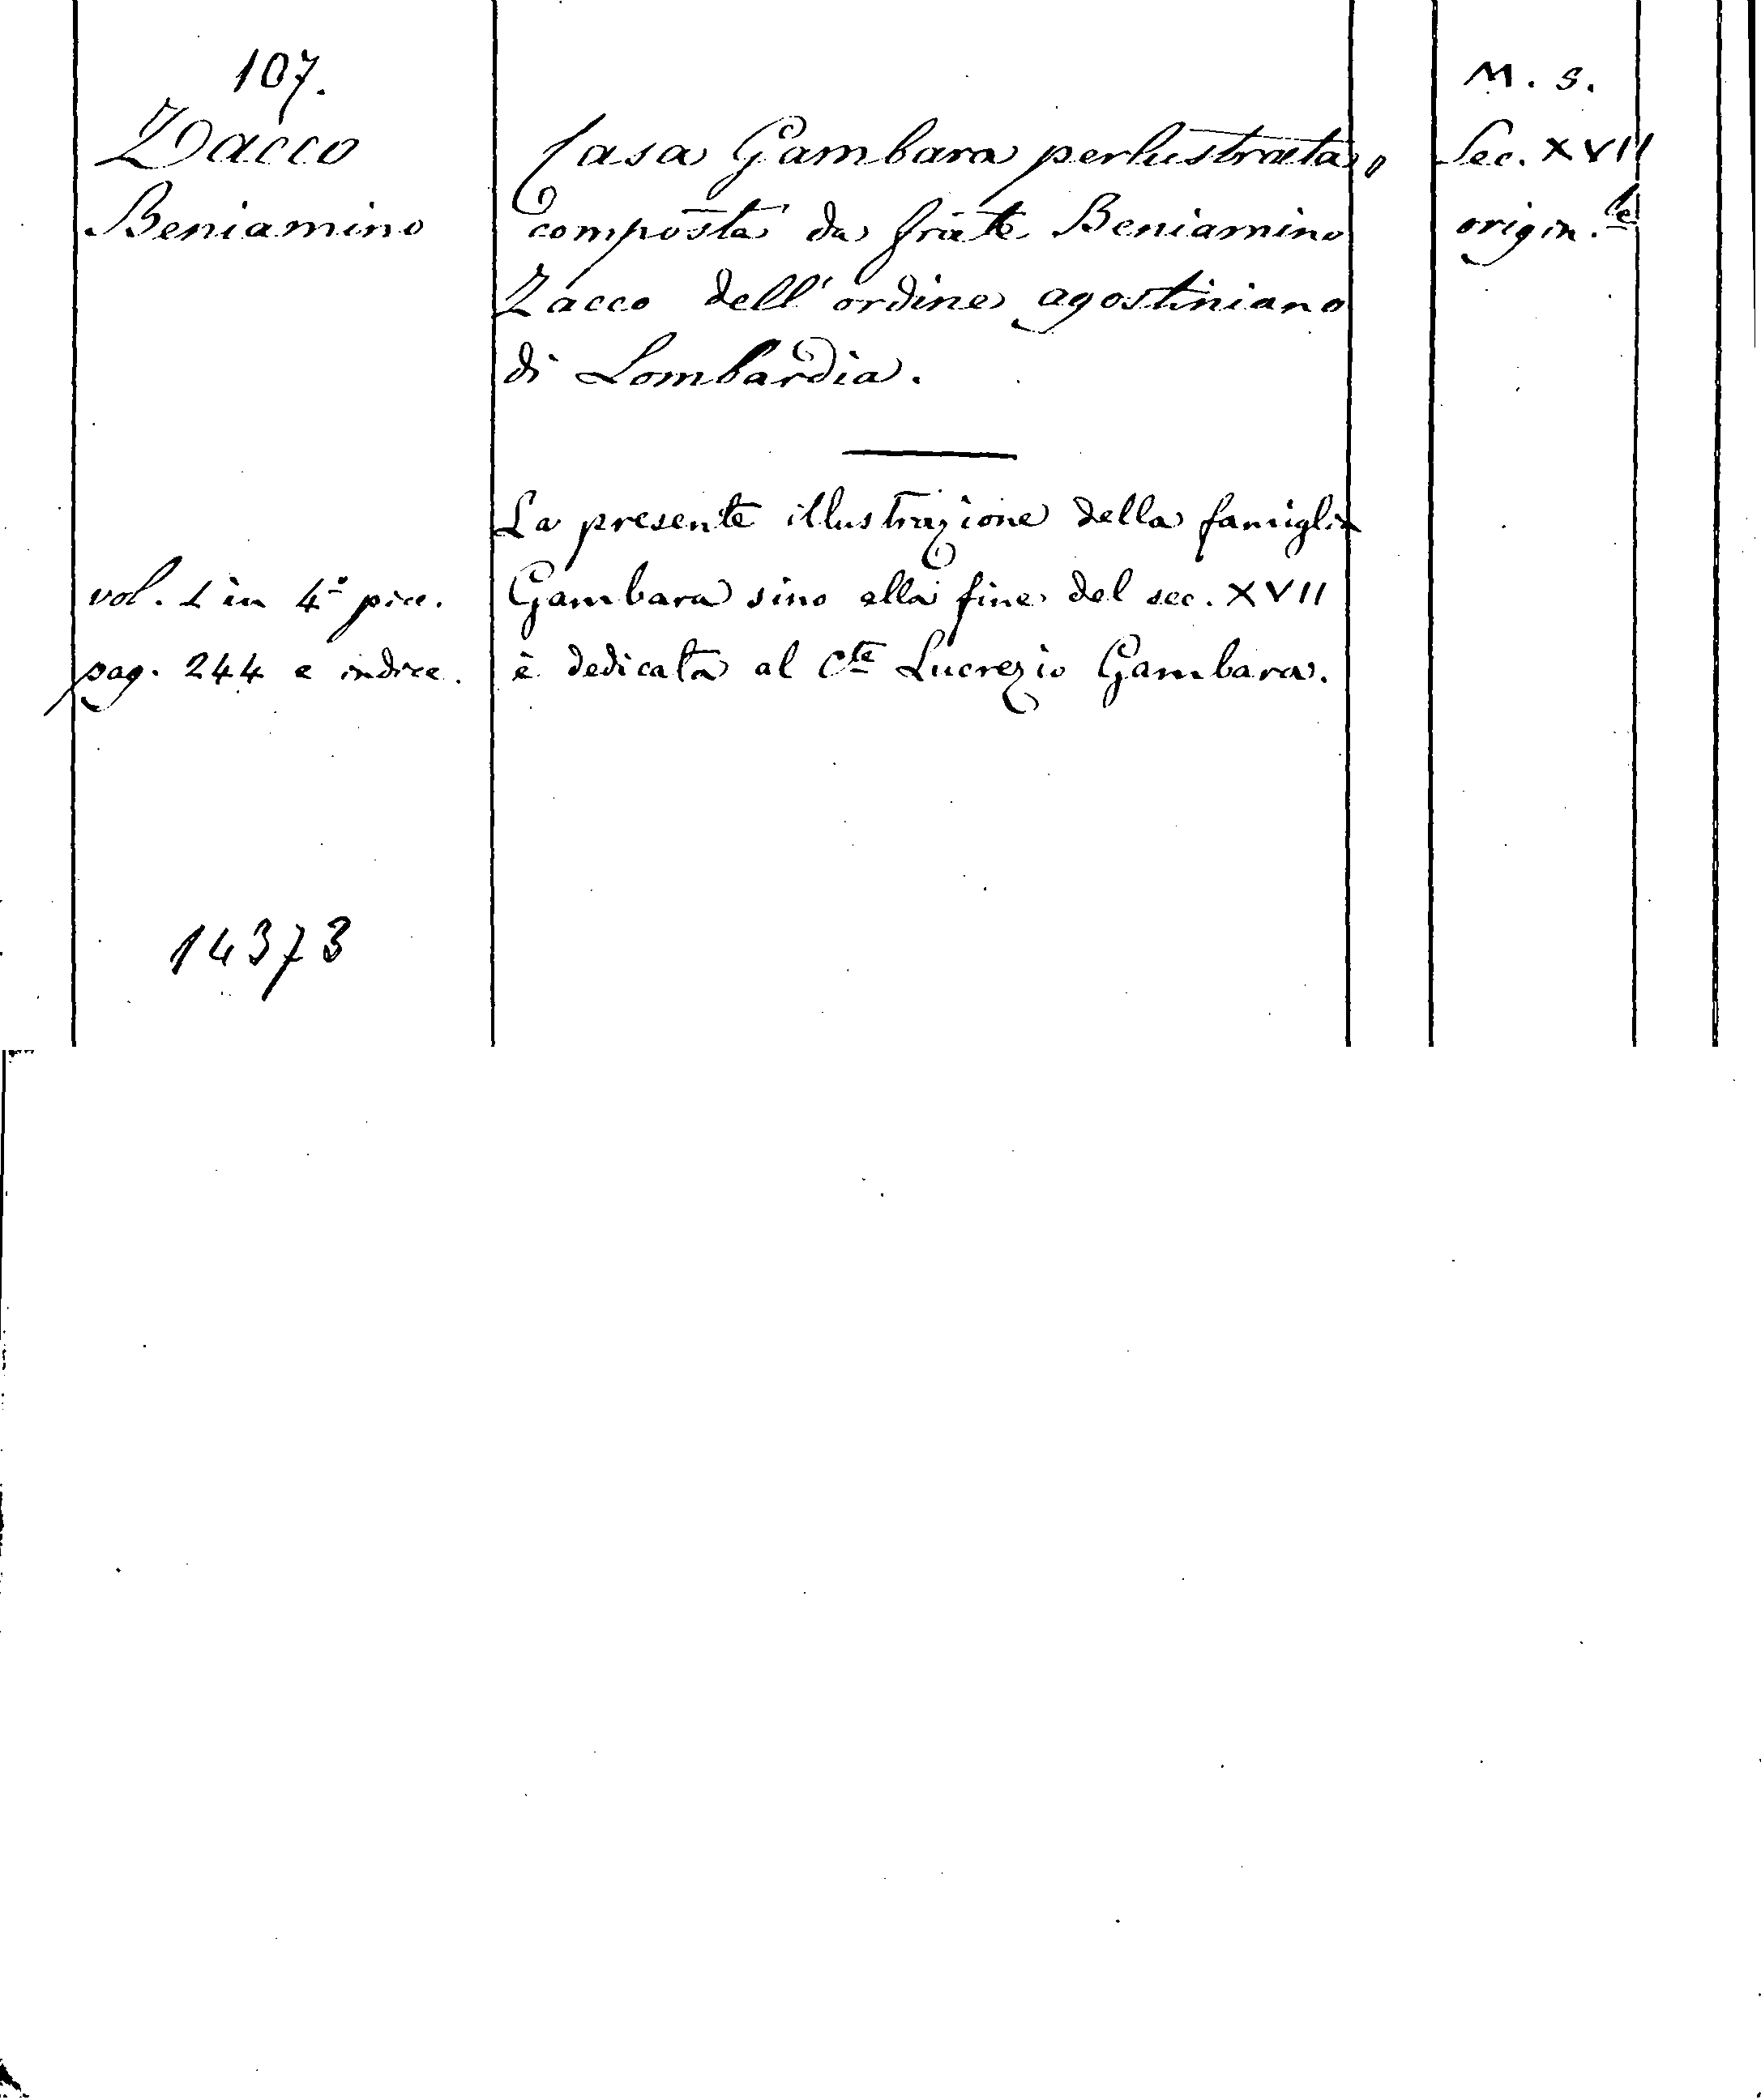 107.
Zacco
Beniamino
vol. 1 in 4º picc.
pag. 244 e indice.
14373
Casa Gambara perlustrata,
composta da frate Beniamino
Zacco dell'ordine agostiniano
di Lombardia.
La presente illustrazione della famiglia
Gambara sino alla fine del sec. XVII
è dedicata al Cte Lucrezio Gambara.
M. S.
Sec. XVII
origin.le